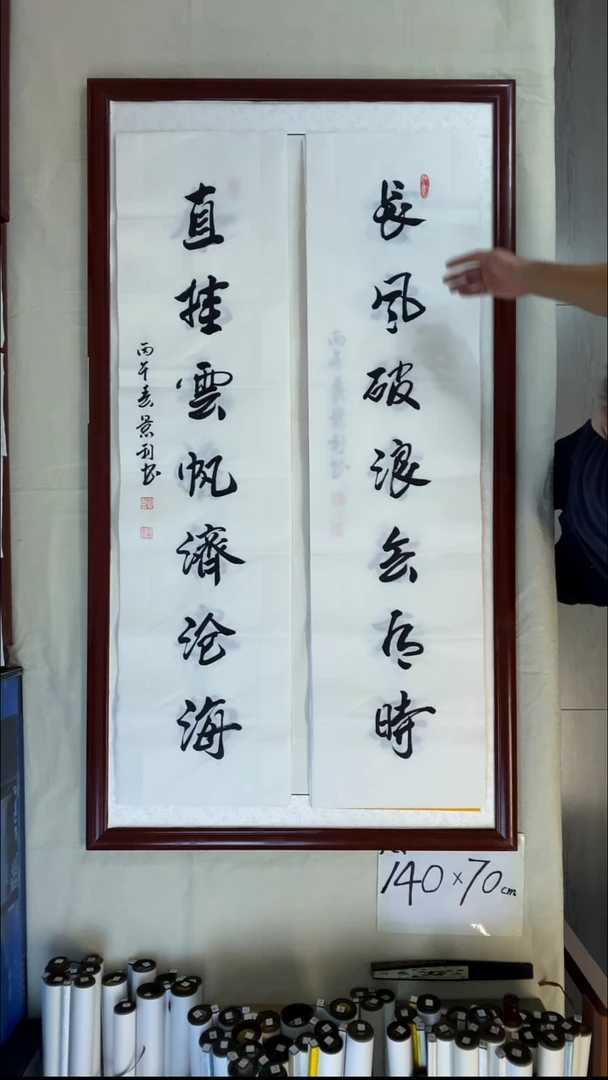 長風破浪会有時
直挂雲帆濟滄海
丙午春景利书
140×70cm